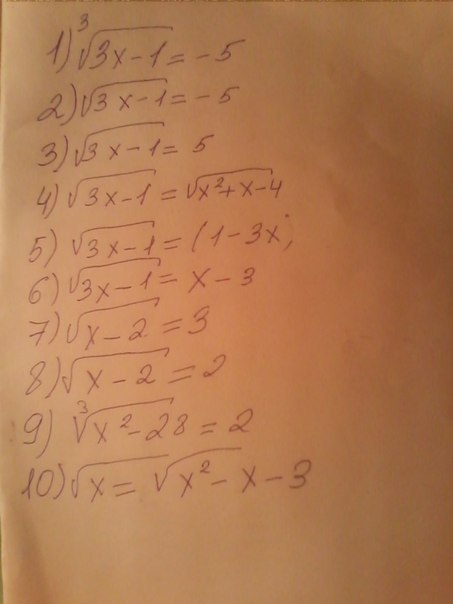 1) ∛3x-1 = -5
2) √3x-1 = -5
3) √3x-1 = 5
4) √3x-1 = √x²+x-4
5) √3x-1 = (1-3x;
6) √3x-1 = x-3
7) √x-2 = 3
8) √x-2 = 2
9) ∛x²-28 = 2
10) √x = √x²-x-3